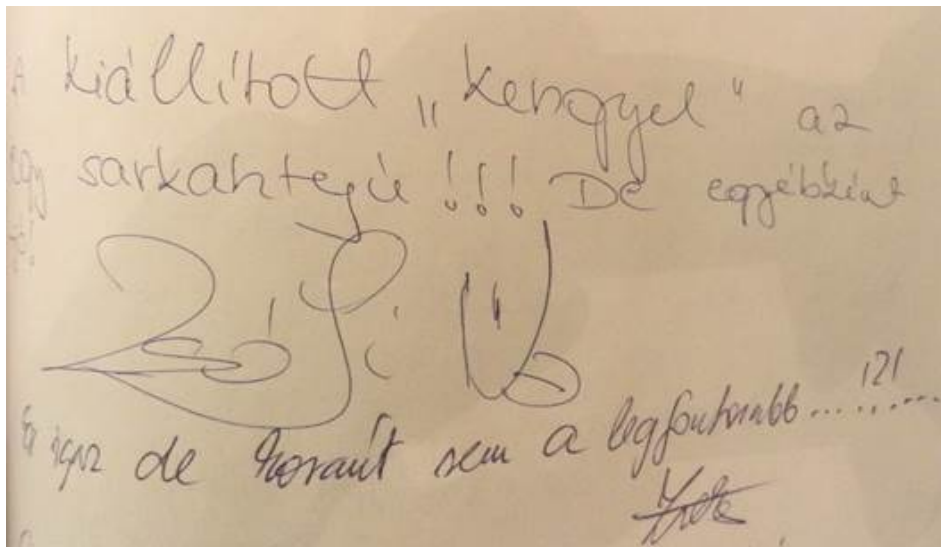 A kiállított „kengyel" az
egy sarkantyú!!! De egyébként
Ez igaz de korántsem a legfontosabb.........!?!